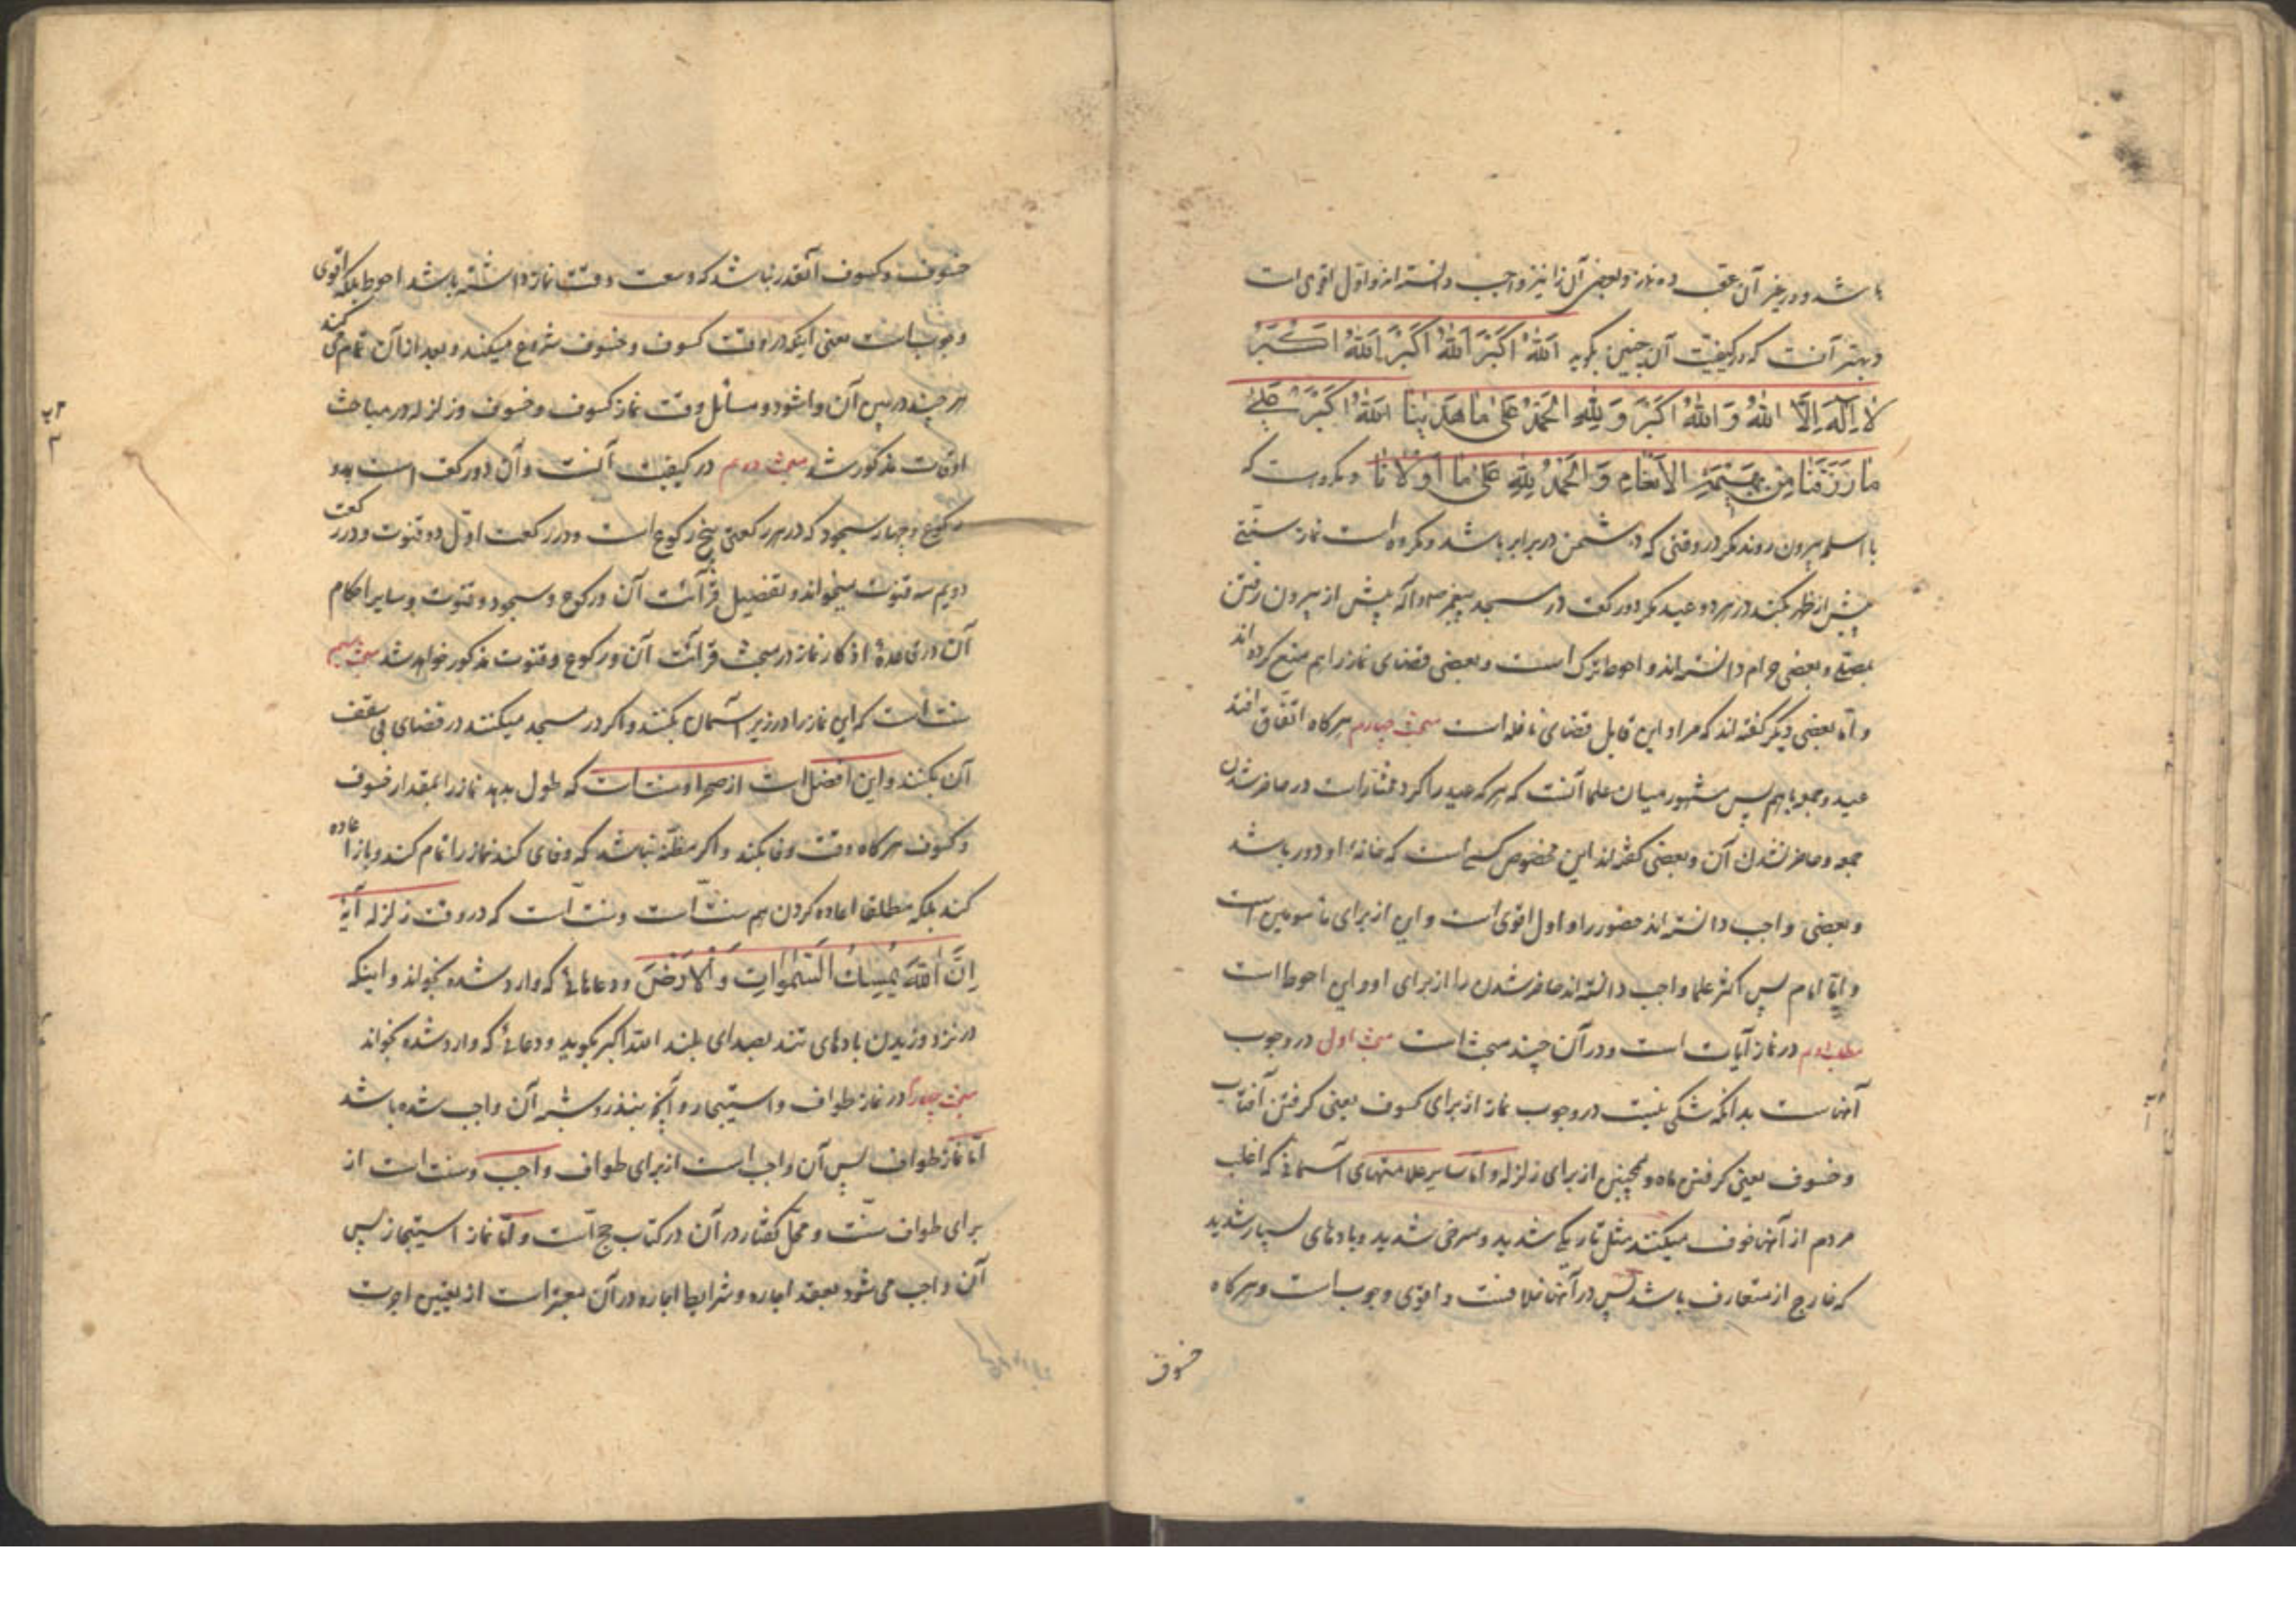 باشد و در غیر آن عقب ده نماز و بعضی آن را نیز واجب دانسته‌اند و اول اقوی است
و بهتر آنست که در کیفیت آن چنین بگوید اَللهُ اَکبَرُ اَللهُ اَکبَرُ اَللهُ اَکبَرُ
لا اِلهَ اِلَّا اللهُ وَ اللهُ اَکبَرُ وَ لِلّهِ الحَمدُ عَلی ما هَدینا اَللهُ اَکبَرُ عَلی
ما رَزَقَنا مِن بَهیمَةِ الاَنعامِ وَ الحَمدُ لِلّهِ عَلی ما اَولانا و مکروهست که
با اسلحه بیرون روند مگر در وقتی که دشمن در برابر باشد و مکروه است نماز سنتی
پیش از ظهر بکنند در هر دو عید مگر دو رکعت در مسجد پیغمبر ص و آله پیش از بیرون رفتن
بمصلی و بعضی حرام دانسته‌اند و احوط ترک است و بعضی قضای نماز را هم منع کرده‌اند
و اما بعضی دیگر گفته‌اند که مراد این قایل قضای نافله است مبحث چهارم هرگاه اتفاق افتد
عید و جمعه با هم پس مشهور میان علما آنست که هر که عید را کرد مختار است در حاضر شدن
جمعه و حاضر نشدن آن و بعضی گفته‌اند این مخصوص کسی است که خانه او دور باشد
و بعضی واجب دانسته‌اند حضور را و اول اقوی است و این از برای مأمومین است
و اما امام پس اکثر علما واجب دانسته‌اند حاضر شدن را از برای او و این احوط است
مطلب دوم در نماز آیات است و در آن چند مبحث است مبحث اول در وجوب
آنهاست بدانکه شکی نیست در وجوب نماز از برای کسوف یعنی گرفتن آفتاب
و خسوف یعنی گرفتن ماه و همچنین از برای زلزله و اما سایر علامتهای آسمانی که اغلب
مردم از آنها خوف میکنند مثل تاریکی شدید و سرخی شدید و بادهای بسیار شدید
که خارج از متعارف باشد پس در آنها خلافست و اقوی وجوب است و هرگاه
خسوف
خسوف و کسوف آنقدر نباشد که وسعت وقت نماز داشته باشد احوط بلکه اقوی
وجوب است یعنی اینکه در وقت کسوف و خسوف شروع میکند و بعد از آن تمام می کند
هر چند در پس آن واشود و مسائل وقت نماز کسوف و خسوف و زلزله در مباحث
اوقات مذکور شد مبحث دوم در کیفیت آنست و آن دو رکعت است بده
رکوع و چهار سجود که در هر رکعتی پنج رکوع است و در رکعت اول دو قنوت و در رکعت
دویم سه قنوت میخواند و تفضیل قرآئت آن و رکوع و سجود و قنوت و سایر احکام
آن در قاعدهٔ اذکار نماز در مبحث قرآئت آن و رکوع و قنوت مذکور خواهد شد مبحث سیم
سنت است که این نماز را در زیر آسمان بکنند و اگر در مسجد میکنند در فضای بی سقف
آن بکنند و این افضل است از صحرا و سنت است که طول بدهد نماز را بمقدار خسوف
و کسوف هرگاه وقت وفا بکند و اگر مظنه نباشد که وفا می کند نماز را تمام کند و باز اعاده
کند بلکه مطلقا اعاده کردن هم سنت است و سنت است که در وقت زلزله آیهٔ
اِنَّ اللهَ یُمسِكُ السَّمواتِ وَ الاَرضَ و دعاهائی که وارد شده بخواند و اینکه
در نزد وزیدن بادهای تند بصدای بلند الله اکبر بگوید و دعائی که وارد شده بخواند
مبحث چهارم در نماز طواف و استیجار و آنچه بنذر و شبه آن واجب شده باشد
اما نماز طواف پس آن واجب است از برای طواف واجب و سنت است از
برای طواف سنت و محل گفتار در آن در کتاب حج است و اما نماز استیجار پس
آن واجب می شود بعقد اجاره و شرایط اجاره در آن معتبر است از تعیین اجرت